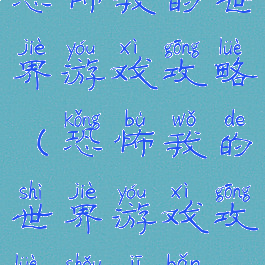 恐怖我的世
jiè yóu xì gōng lüè
界游戏攻略
kǒng bù wǒ de
(恐怖我的
shì jiè yóu xì gōng
世界游戏攻
lüè shǒu jī bǎn